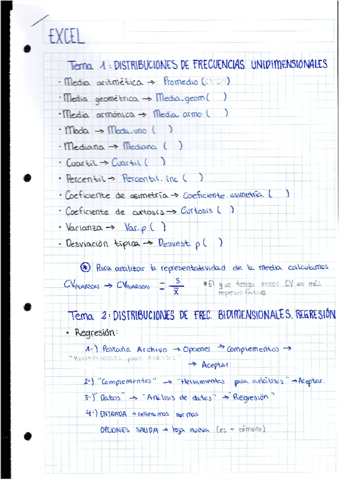 EXCEL
Tema 1: DISTRIBUCIONES DE FRECUENCIAS UNIDIMENSIONALES
· Media aritmética → Promedio (
· Media geométrica → Media.geom ( )
· Media armónica → Media.armo ( )
· Moda → Moda.uno ( )
· Mediana → Mediana ( )
· Cuartil → Cuartil ( )
· Percentil → Percentil.inc ( )
· Coeficiente de asimetría → Coeficiente.asimetría ( )
· Coeficiente de curtosis → Curtosis ( )
· Varianza → Var.p ( )
· Desviación típica → Desvest.p ( )
Para analizar la representatividad de la media calculamos
CV PEARSON → CV PEARSON = S / X̄ *El que tenga menor CV es más
representativo
Tema 2: DISTRIBUCIONES DE FREC. BIDIMENSIONALES. REGRESIÓN
· Regresión:
1-) Pestaña Archivo → Opciones → Complementos →
→ Aceptar
2-) "Complementos" → "Herramientas para análisis" → Aceptar.
3-) "Datos" → "Análisis de datos" → "Regresión"
4-) ENTRADA →
OPCIONES SALIDA → hoja nueva (es + cómodo)